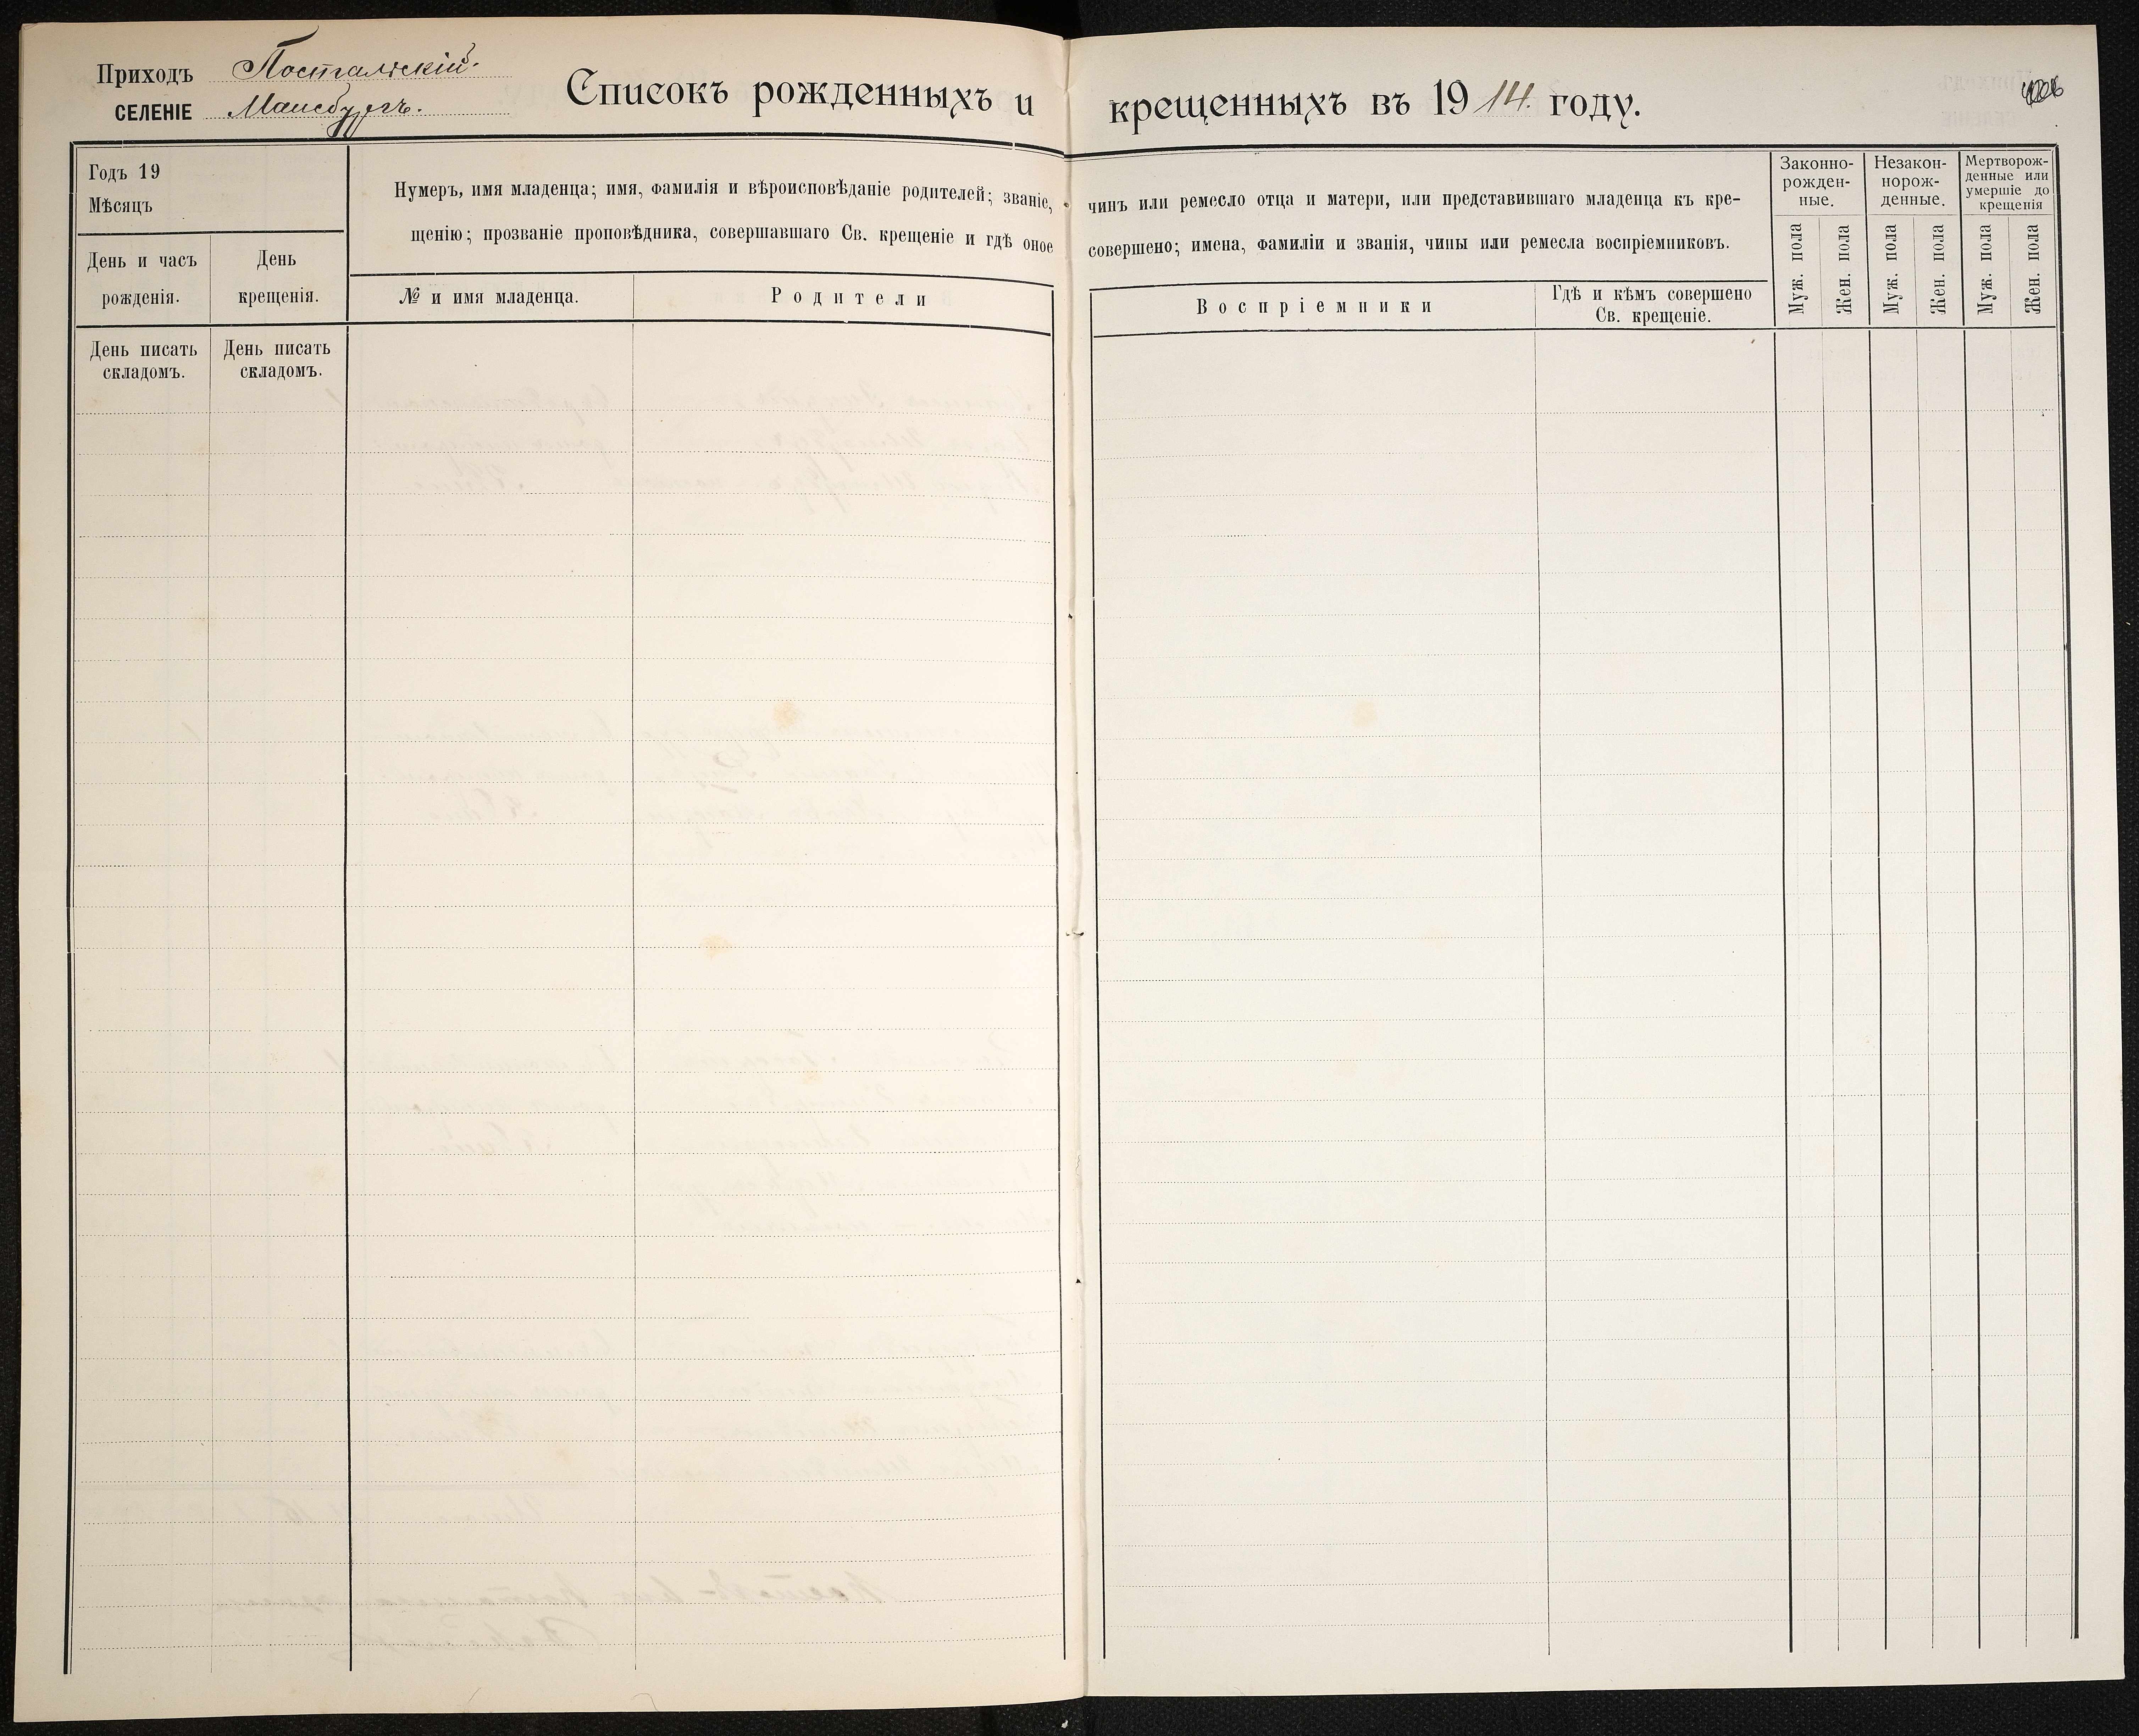 Приходъ Постальскій.
СЕЛЕНІЕ Мансбургъ.
Списокъ рожденныхъ и крещенныхъ въ 1914. году.
Годъ 19
Мѣсяцъ
День и часъ
рожденія.
День
крещенія.
Нумеръ, имя младенца; имя, фамилія и вѣроисповѣданіе родителей; званіе, чинъ или ремесло отца и матери, или представившаго младенца къ кре-
щенію; прозваніе проповѣдника, совершавшаго Св. крещеніе и гдѣ оное совершено; имена, фамиліи и званія, чины или ремесла воспріемниковъ.
№ и имя младенца.
Родители
Воспріемники
Гдѣ и кѣмъ совершено
Св. крещеніе.
Законно-
рожден-
ные.
Незакон-
норож-
денные.
Мертворож-
денные или
умершіе до
крещенія
Муж. пола
Жен. пола
Муж. пола
Жен. пола
Муж. пола
Жен. пола
День писать
складомъ.
День писать
складомъ.